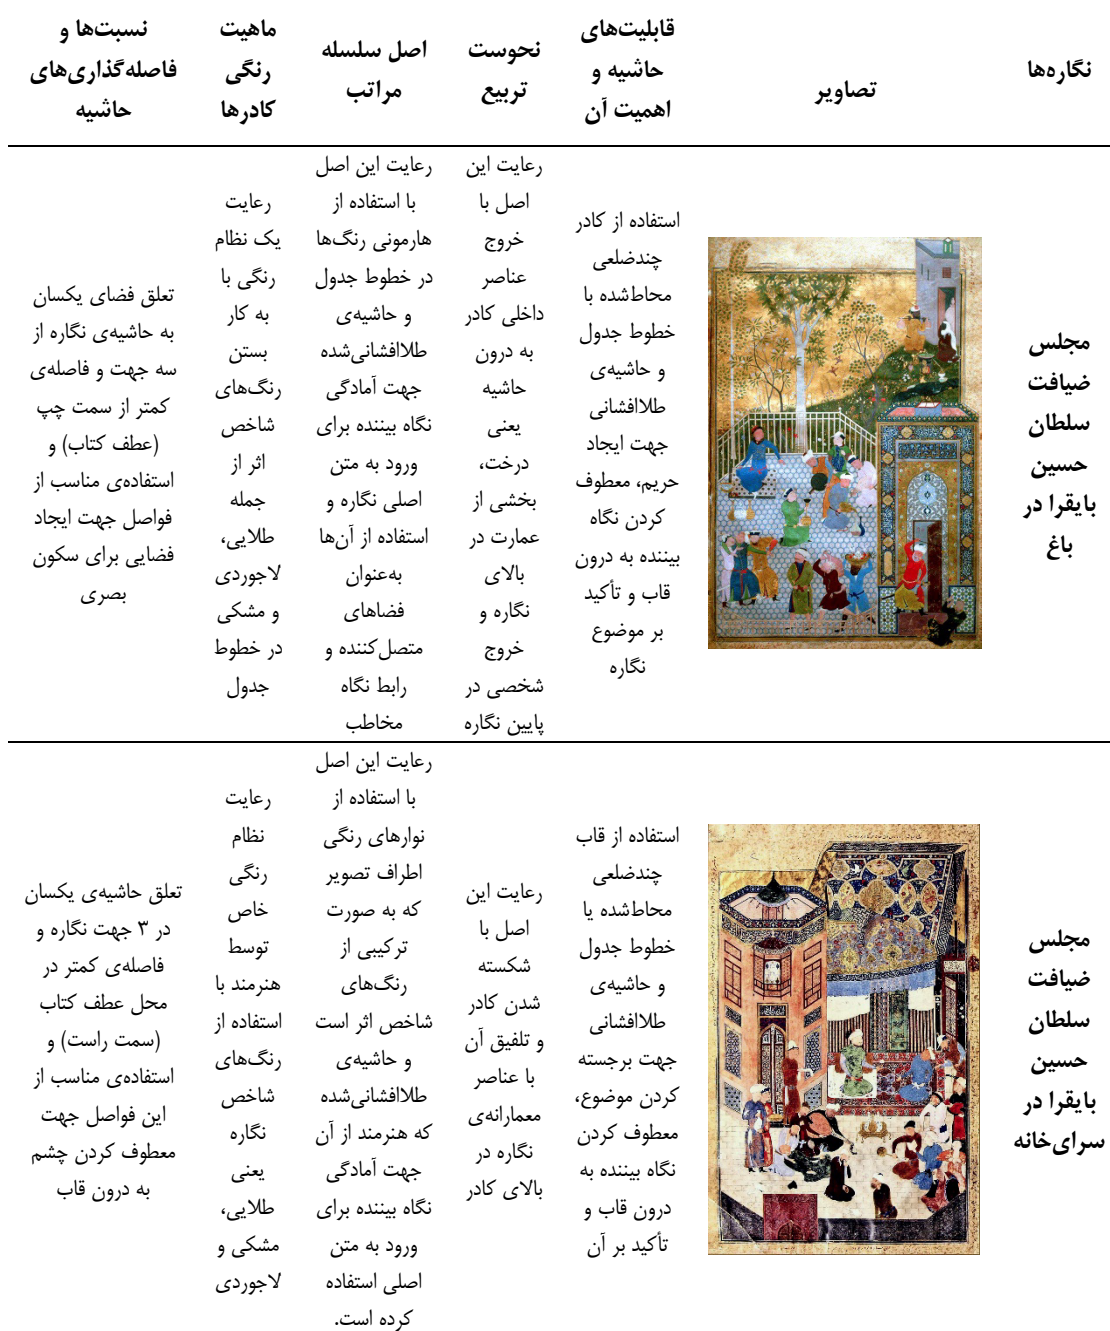 نگاره‌ها
تصاویر
قابلیت‌های
حاشیه و
اهمیت آن
نحوست
تربیع
اصل سلسله
مراتب
ماهیت
رنگی
کادرها
نسبت‌ها و
فاصله‌گذاری‌های
حاشیه
مجلس
ضیافت
سلطان
حسین
بایقرا در
باغ
استفاده از کادر
چندضلعی
محاط‌شده با
خطوط جدول
و حاشیه‌ی
طلاافشانی
جهت ایجاد
حریم، معطوف
کردن نگاه
بیننده به درون
قاب و تأکید
بر موضوع
نگاره
رعایت این
اصل با
خروج
عناصر
داخلی کادر
به درون
حاشیه
یعنی
درخت،
بخشی از
عمارت در
بالای
نگاره و
خروج
شخصی در
پایین نگاره
رعایت این اصل
با استفاده از
هارمونی رنگ‌ها
در خطوط جدول
و حاشیه‌ی
طلاافشانی‌شده
جهت آمادگی
نگاه بیننده برای
ورود به متن
اصلی نگاره و
استفاده از آن‌ها
به‌عنوان
فضاهای
متصل‌کننده و
رابط نگاه
مخاطب
رعایت
یک نظام
رنگی با
به کار
بستن
رنگ‌های
شاخص
اثر از
جمله
طلایی،
لاجوردی
و مشکی
در خطوط
جدول
تعلق فضای یکسان
به حاشیه‌ی نگاره از
سه جهت و فاصله‌ی
کمتر از سمت چپ
(عطف کتاب) و
استفاده‌ی مناسب از
فواصل جهت ایجاد
فضایی برای سکون
بصری
مجلس
ضیافت
سلطان
حسین
بایقرا در
سرای‌خانه
استفاده از قاب
چندضلعی
محاط‌شده یا
خطوط جدول
و حاشیه‌ی
طلاافشانی
جهت برجسته
کردن موضوع،
معطوف کردن
نگاه بیننده به
درون قاب و
تأکید بر آن
رعایت این
اصل با
شکسته
شدن کادر
و تلفیق آن
با عناصر
معمارانه‌ی
نگاره در
بالای کادر
رعایت این اصل
با استفاده از
نوارهای رنگی
اطراف تصویر
که به صورت
ترکیبی از
رنگ‌های
شاخص اثر است
و حاشیه‌ی
طلاافشانی‌شده
که هنرمند از آن
جهت آمادگی
نگاه بیننده برای
ورود به متن
اصلی استفاده
کرده است.
رعایت
نظام
رنگی
خاص
توسط
هنرمند با
استفاده از
رنگ‌های
شاخص
نگاره
یعنی
طلایی،
مشکی و
لاجوردی
تعلق حاشیه‌ی یکسان
در ۳ جهت نگاره و
فاصله‌ی کمتر در
محل عطف کتاب
(سمت راست) و
استفاده‌ی مناسب از
این فواصل جهت
معطوف کردن چشم
به درون قاب